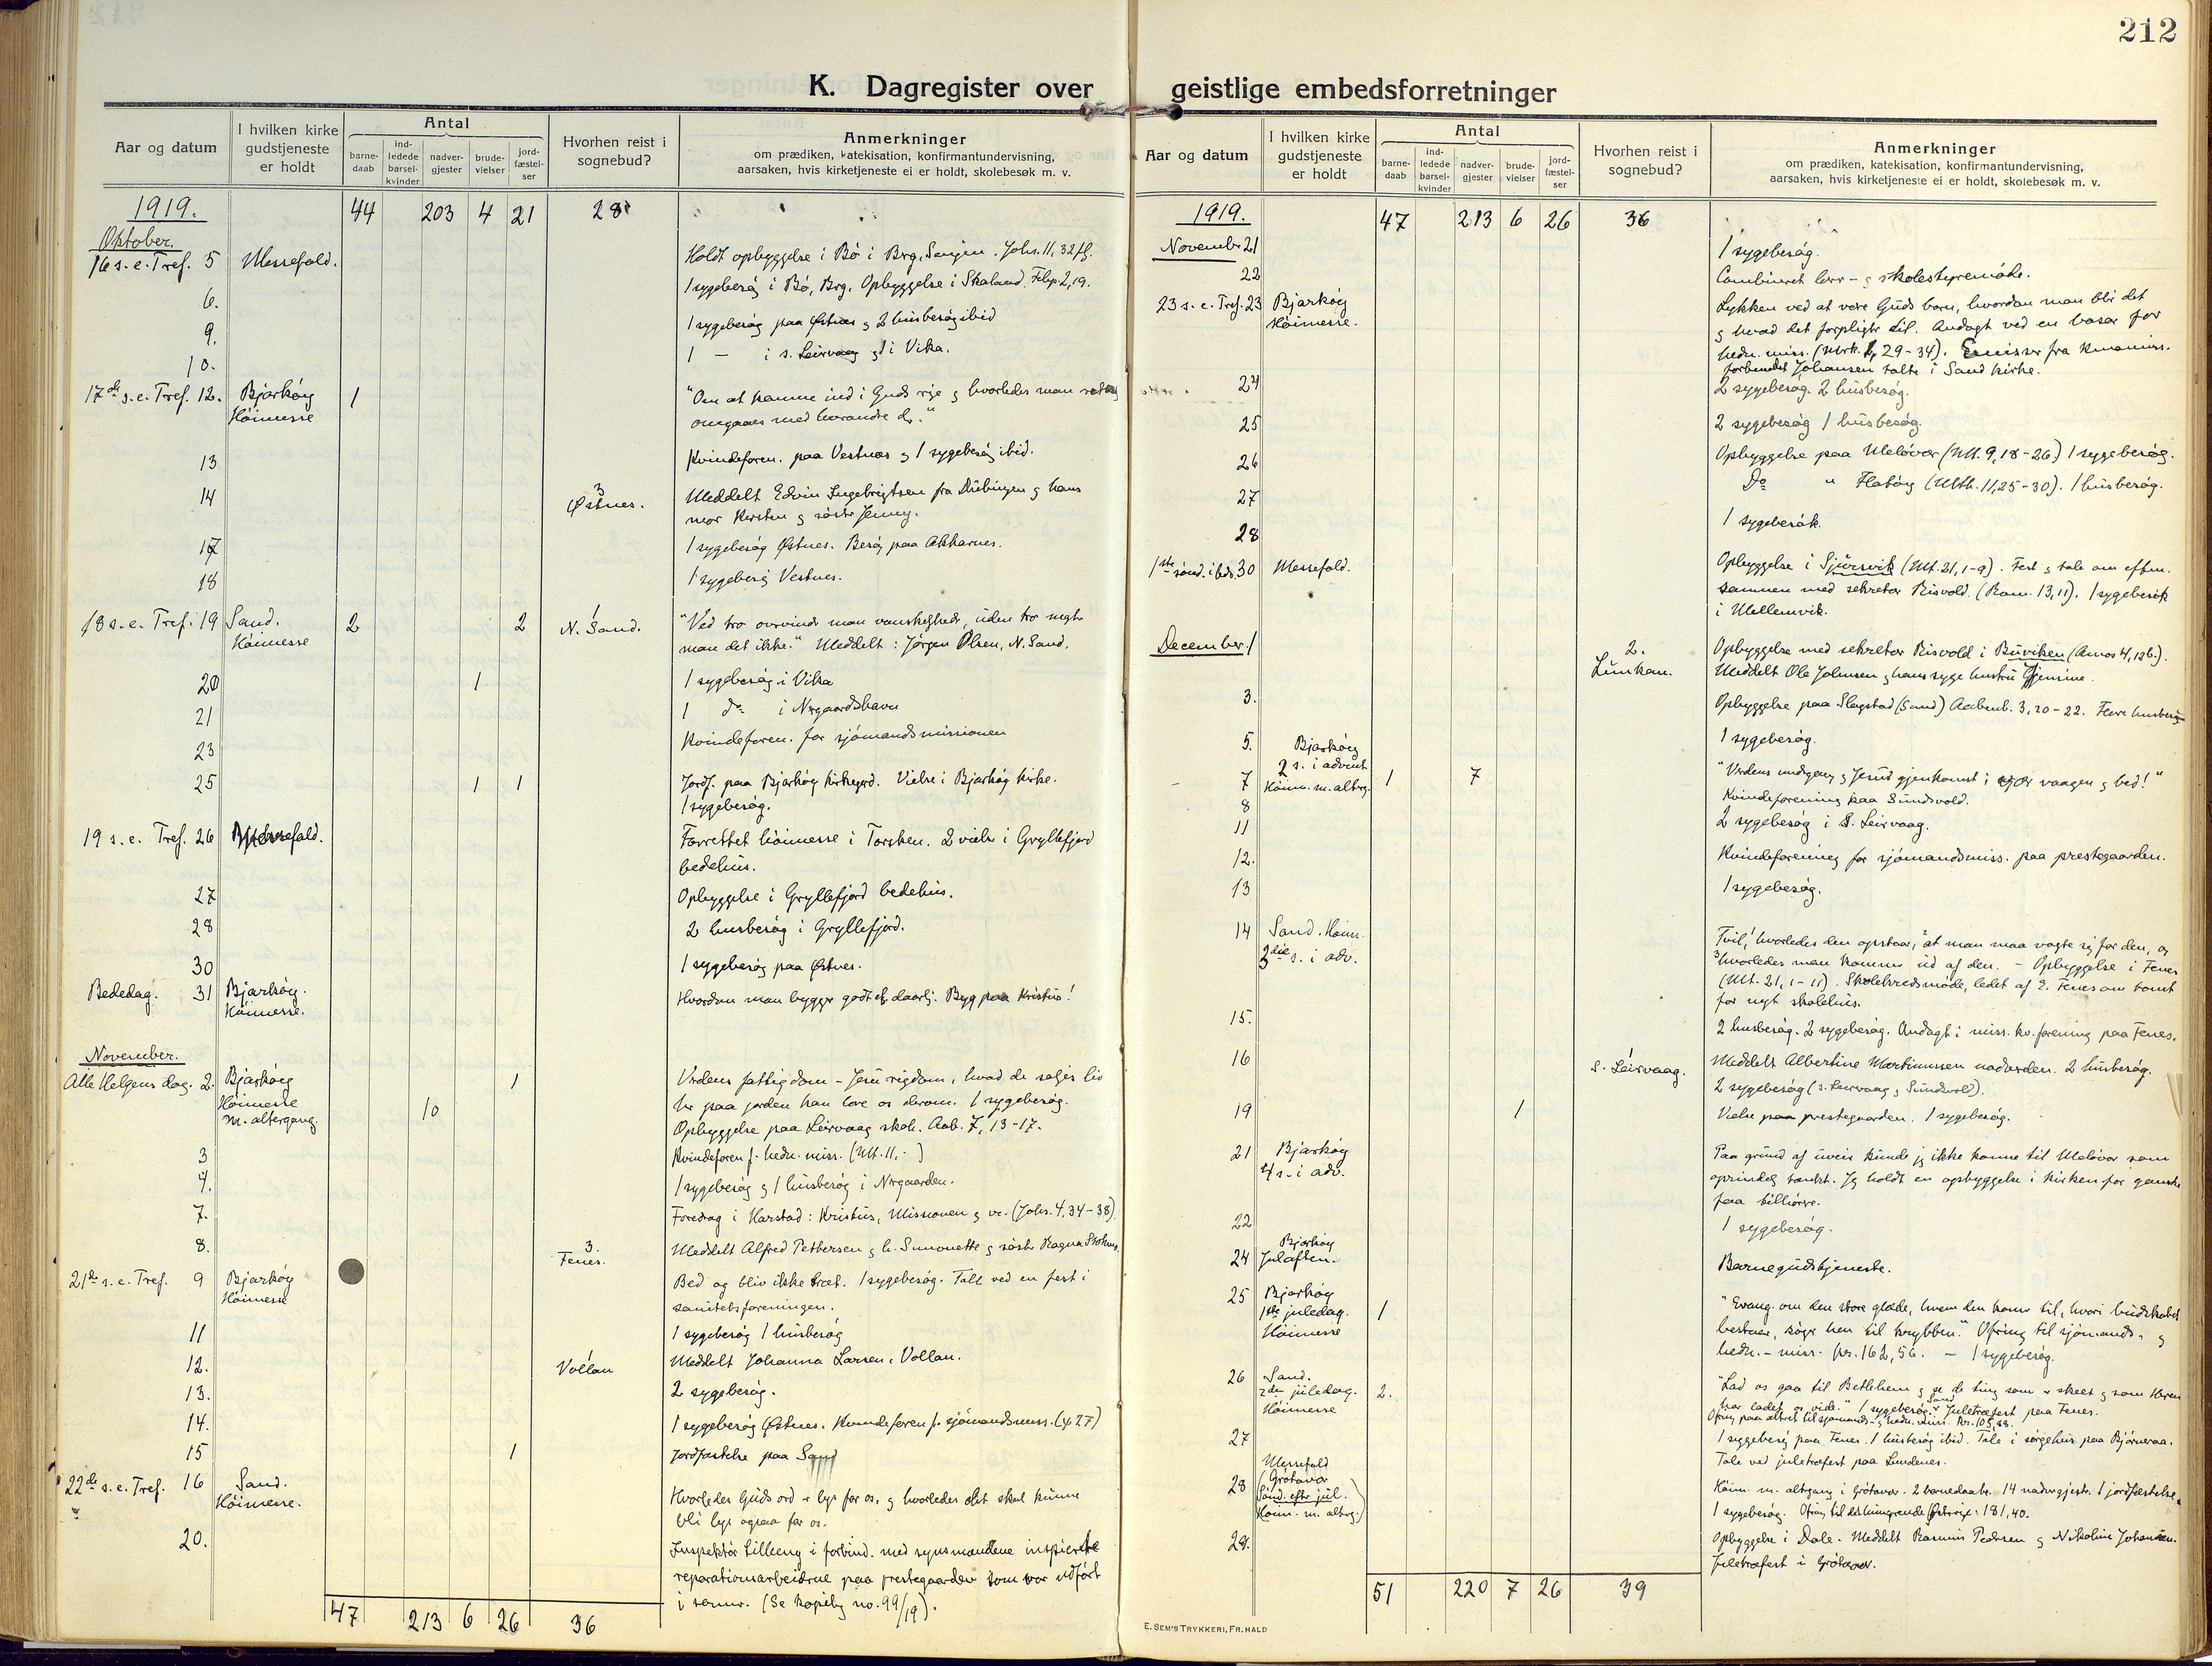 212
K. Dagregister over geistlige embedsforretninger
Aar og datum
I hvilken kirke gudstjeneste er holdt
Antal
barne-daab
ind-ledede barsel-kvinder
nadver-gjester
brude-vielser
jord-fæstel-ser
Hvorhen reist i sognebud?
Anmerkninger
om prædiken, katekisation, konfirmantundervisning,
aarsaken, hvis kirketjeneste ei er holdt, skolebesøk m. v.
1919. 44 203 4 21 28
Oktober.
16 s. e. Tref. 5 Messefald. Holdt opbyggelse i Bø i Brg, Senjen. Johs. 11, 32 ff.
6. 1 sygebesøg i Bø, Brg. Opbyggelse i Skaland. Filip 2, 19.
9. 1 sygebesøg paa Østnes & 2 husbesøg ibid
10. 1 — i s. Leirvaag & 1 i Vika.
17de s. e. Tref. 12. Bjarkøy 1 "Om at komme ind i Guds rige & hvorledes man
Høimesse omgaaes med hverandre der."
13 Kvindeforen. paa Vestnes & 1 sygebesøg ibid.
14 3 Østnes. Meddelt Edvin Ingebrigtsen fra & hans
mor Kirsten & søster Jenny.
17 1 sygebesøg Østnes. Besøg paa Akkarnes.
18 1 sygebesøg Vestnes.
18 s. e. Tref. 19 Sand. 2 2 1 N. Sand. "Ved tro overvinder man vanskeligheder, uden tro negter
Høimesse man det ikke." Meddelt: Jørgen Olsen, N. Sand.
20 1 1 sygebesøg i Vika
21 1 do i Nergaardshavn
23 Kvindeforen. for sjømandsmissionen
25 1 1 Jordf. paa Bjarkøy kirkegrd. Vielse i Bjarkøy kirke.
1 sygebesøg.
19 s. e. Tref. 26 Messefald. Forrettet høimesse i Torsken. 2 vielser i Gryllefjord
bedehus.
27 Opbyggelse i Gryllefjord bedehus.
28 2 husbesøg i Gryllefjord.
30 1 sygebesøg paa Østnes.
Bededag. 31 Bjarkøy. Hvordan man bygger godt el. daarlig. Byg paa Kristus!
Høimesse.
November.
Alle Helgens dag. 2. Bjarkøy 1 Verdens fattigdom – Jesu rigdom, hvad de salges liv
Høimesse 10 her paa jorden kan lære os derom. 1 sygebesøg.
m. altergang. Opbyggelse paa Leirvaag skole. Aab. 7, 13-17.
3 Kvindeforen f. hedn. miss. (Mt. 11, )
4. 1 sygebesøg & 1 husbesøg i Nergaarden.
7. Foredrag i Harstad: Kristus, Missionen & vi. (Johs. 4, 34-38)
8. 3. Fenes. Meddelt Alfred Pettersen & h. Simonette & søster Ragna
21de s. e. Tref. 9 Bjarkøy Bed og bliv ikke træt. 1 sygebesøg. Tale ved en fest i
Høimesse sanitetsforeningen.
11 1 sygebesøg 1 husbesøg
12. 1 Vollan Meddelt Johanna Larsen, Vollan.
13. 2 sygebesøg.
14. 1 sygebesøg Østnes. Kvindeforen f. sjømandsmiss. (4, 27)
15 1 Jordfæstelse paa Sand
22de s. e. Tref. 16 Sand. Hvorledes Guds ord er lys for os, & hvorledes det skal kunne
Høimesse. bli lys ogsaa for os.
20. Inspektør Lilleeng i forbind. med synsmændene inspicerte
reparationsarbeiderne paa prestegaarden som var udført
i sommer. (Se kopibg no. 99/19).
47 213 6 26 36
1919. 47 213 6 26 36
November 21 1 sygebesøg.
22 Combineret herr- & skolestyremøde.
23 s. e. Tref. 23 Bjarkøy Lykken ved at være Guds barn, hvordan man blir det
Høimesse. & hvad det forpligter til. Andagt ved en basar for
hedn. miss. (Mrk. 1, 29-34). Emissær fra Kinamiss.
forbundet Johansen talte i Sand kirke.
24 2 sygebesøg. 2 husbesøg.
25 2 sygebesøg 1 husbesøg.
26 Opbyggelse paa Meløvær (Mt. 9, 18-26) 1 sygebesøg.
27 Do " Flatøy (Mth. 11, 25-30). 1 husbesøg.
28 1 sygebesøk.
1ste sønd. i adv. 30 Messefald. Opbyggelse i Sjursvik (Mt. 21, 1-9). Fest & tale om eftm.
sammen med sekretær Risvold. (Rom. 13, 11). 1 sygebesøk
i Mellemvik.
December 1 2. Lunkan. Opbyggelse med sekretær Risvold i Buviken (Amos 4, 12b.).
Meddelt Ole Johnsen & hans syge hustru Gjensine.
3. Opbyggelse paa Slagstad (Sand) Aabenb. 3, 20-22. Flere husbesøg
5. 1 sygebesøg.
7 Bjarkøy 2 s. i advent Høim. m. altrg. 1 7 "Verdens undgang & Jesus gjenkomst i vaagen & bed!"
8 Kvindeforening paa Sundsvold.
11 2 sygebesøg i S. Leirvaag.
12. Kvindeforening for sjømandsmiss. paa prestegaarden.
13 1 sygebesøg.
14 Sand. Høim. Tvil, hvorledes den opstaar, at man maa vogte sig for den, og
3die s. i adv. hvorledes man kommer ud af den. – Opbyggelse i Fenes
(Mt. 21, 1-11). Skolekredsmøde, ledet af E. Fenes om tomt
for nyt skolehus.
15. 2 husbesøg. 2 sygebesøg. Andagt i miss. kv. forening paa Fenes.
16 1 S. Leirvaag. Meddelt Albertine Martinussen nadverden. 2 husbesøg.
2 sygebesøg (s. Leirvaag & Sundsvold).
19 1 Vielse paa prestegaarden. 1 sygebesøg.
21 Bjarkøy Paa grund af uveir kunde jeg ikke komme til Meløvær som
4 s. i adv. oprindelig tænkt. Jeg holdt en opbyggelse i kirken for ganske
faa tilhørere.
22 1 sygebesøg.
24 Bjarkøy Julaften. Barnegudstjeneste.
25 Bjarkøy 1 "Evang. om den store glæde, hvem den kommer til, hvori budskabet
1ste juledag. bestaar, søger hen til krybben." Ofring til sjømands- &
Høimesse hedn.- miss. kr. 162,56. – 1 sygebesøg.
26 Sand. 2. "Lad os gaa til Betlehem & se de ting som er skeet & som Herren
2den juledag. har ladet os vide." 1 sygebesøg Sand. Juletræfest paa Fenes.
Høimesse Ofring paa altret til sjømands- & hedn. miss. kr. 105,88.
27 1 sygebesøg paa Fenes. 1 husbesøg ibid. Tale i sørgehus paa Bjørneraa.
Tale ved juletræfest paa Lundenes.
28 Messefald (Grøtavær Sønd. efter jul. Høim. m. altrg.) Høim. m. altrgang i Grøtavær. 2 barnedaab. 14 nadvergjester. 1 jordfæstelse.
1 sygebesøg. Ofring til det hungrende Østerrige: 181,40.
29. Opbyggelse i Dale. Meddelt Rasmus Pedersen & Nikoline Johansen.
Juletræfest i Grøtavær.
51 220 7 26 39
E. SEM'S TRYKKERI, FR.HALD